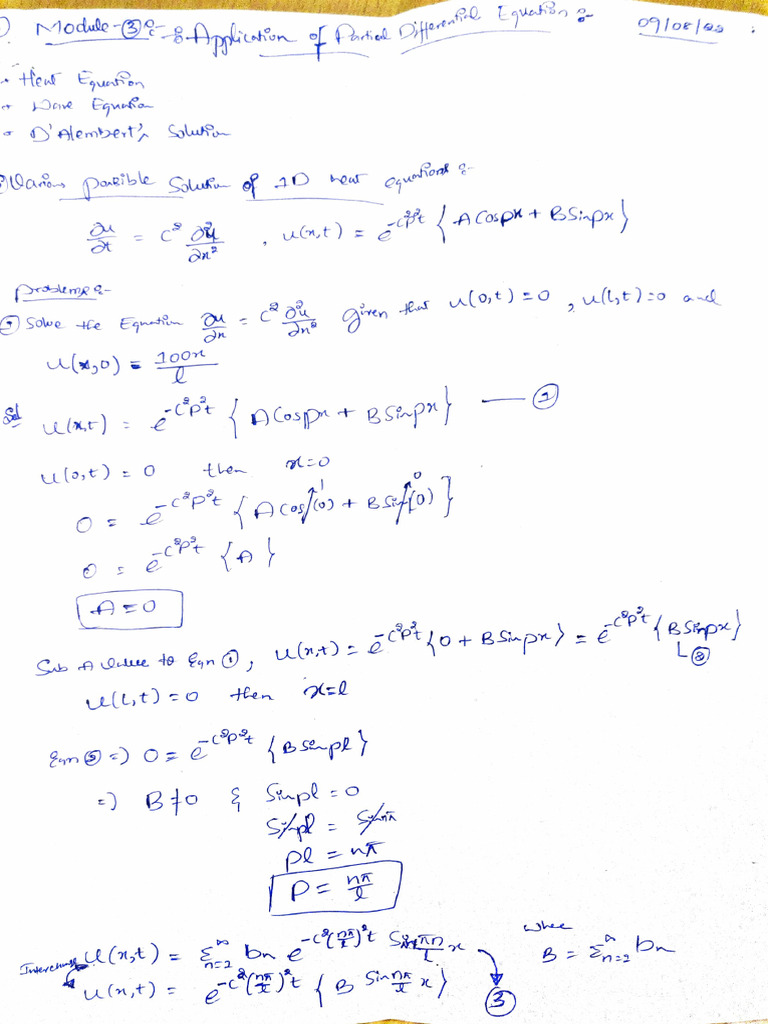 Module-③:- :- Application of Partial Differential Equation :- 09/08/22
• Heat Equation
• Wave Equation
• D'Alembert's Solution
Various possible Solution of 1D heat equations :-
∂u/∂t = c² ∂²u/∂x² , u(x,t) = e^(-c²p²t) { A Cospx + B Sinpx }
Problems :-
① Solve the Equation ∂u/∂x = c² ∂²u/∂x² given that u(0,t) = 0 , u(l,t) = 0 and
u(x,0) = 100x/l
Sol u(x,t) = e^(-c²p²t) { A Cospx + B Sinpx } — ①
u(0,t) = 0 then x = 0
0 = e^(-c²p²t) { A Cos(0) 1 + B Sin(0) 0 }
0 = e^(-c²p²t) { A }
A = 0
Sub A value to Eqn ①, u(x,t) = e^(-c²p²t) { 0 + B Sinpx } = e^(-c²p²t) { B Sinpx } ②
u(l,t) = 0 then x = l
Eqn ② => 0 = e^(-c²p²t) { B Sinpl }
=> B ≠ 0 & Sinpl = 0
Sinpl = Sinnπ
pl = nπ
P = nπ/l
Interchange u(x,t) = Σ_(n=2)^∞ bn e^(-c²(nπ/l)²t) Sin nπ/l x where B = Σ_(n=2)^∞ bn
u(x,t) = e^(-c²(nπ/l)²t) { B Sin nπ/l x } ③